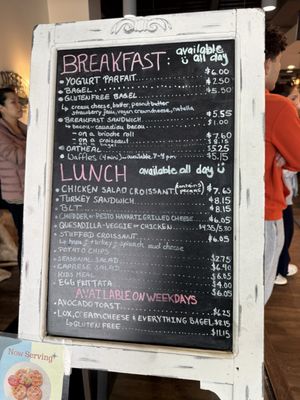 BREAKFAST: available all day
YOGURT PARFAIT $6.00
BAGEL $2.50
GLUTEN FREE BAGEL $5.50
↳ cream cheese, butter, peanut butter
strawberry jam, vegan cream cheese, nutella
BREAKFAST SANDWICH $5.55
↳ bacon - canadian bacon $1.00
- on a brioche roll $7.60
- on a
- on a bagel
OATMEAL $5.25
Waffles (4 mini) - available 7-4 pm $5.15
LUNCH available all day
CHICKEN SALAD CROISSANT (contains pecans) $7.65
TURKEY SANDWICH $8.15
BLT $8.15
CHEDDER OR PESTO HAVARTI GRILLED CHEESE $6.05
QUESADILLA - VEGGIE OR CHICKEN 4.95/5.80
STUFFED CROISSANT $6.05
↳ ham + turkey + spinach and cheese
POTATO CHIPS
SEASONAL SALAD $2.75
CAPRESE SALAD $6.40
KIDS MEAL $6.55
EGG FRITTATA $4.00
AVAILABLE ON WEEKDAYS $6.05
AVOCADO TOAST $6.25
LOX, CREAM CHEESE & EVERYTHING BAGEL $8.15
↳ GLUTEN FREE $11.15
Now Serving